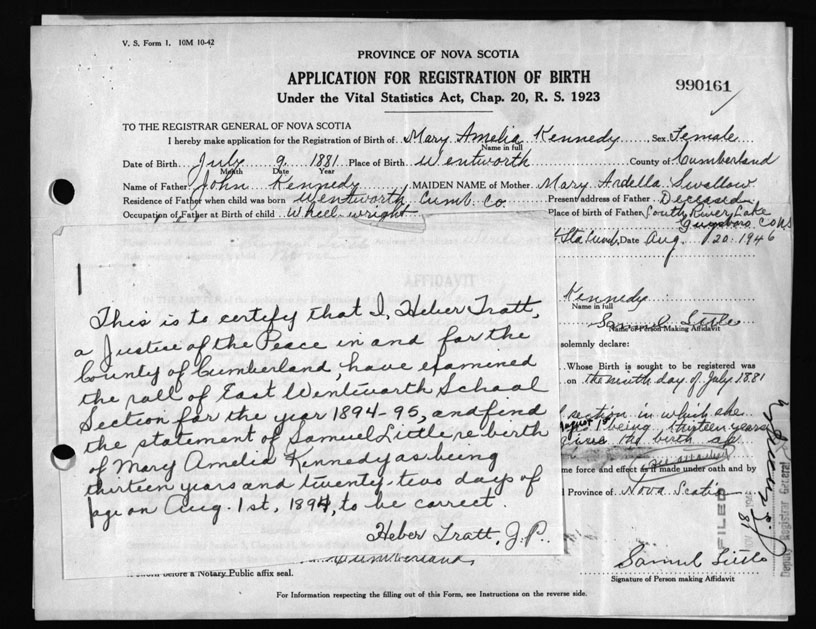 V. S. Form 1. 10M 10-42
PROVINCE OF NOVA SCOTIA
APPLICATION FOR REGISTRATION OF BIRTH
990161
Under the Vital Statistics Act, Chap. 20, R. S. 1923
TO THE REGISTRAR GENERAL OF NOVA SCOTIA
I hereby make application for the Registration of Birth of Mary Amelia Kennedy Sex Female
Name in full
Date of Birth July 9 1881 Place of Birth Wentworth County of Cumberland
Month Date Year
Name of Father John Kennedy MAIDEN NAME of Mother Mary Ardella Swallow
Residence of Father when child was born Wentworth, Cumb. Co. Present address of Father Deceased
Occupation of Father at Birth of child Wheelwright Place of birth of Father South River Lake
Guysboro Co NS
Date Aug. 20. 1946
AFFIDAVIT
Kennedy
Name in full
Samuel Little
Name of Person Making Affidavit
solemnly declare:
Whose Birth is sought to be registered was
on the ninth day of July 1881
section in which she
being thirteen years
give the birth as
me force and effect as if made under oath and by
Province of Nova Scotia
FILED
Deputy Registrar General
Samuel Little
Signature of Person making Affidavit
This is to certify that I, Heber Tratt,
a Justice of the Peace in and for the
County of Cumberland, have examined
the roll of East Wentworth School
Section for the year 1894-95, and find
the statement of Samuel Little re birth
of Mary Amelia Kennedy as being
thirteen years and twenty-two days of
age on Aug. 1st, 1894, to be correct.
Heber Tratt, J.P.
Cumberland
before a Notary Public affix seal.
For Information respecting the filling out of this Form, see Instructions on the reverse side.